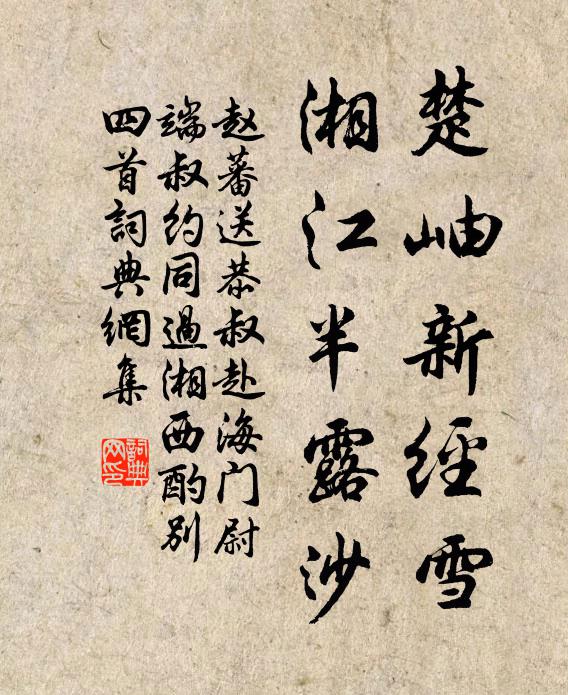 楚岫新經雪
湘江半露沙
赵蕃送恭叔赴海门尉
端叔約同過湘西酌别
四首詞典網集
詞典
网印